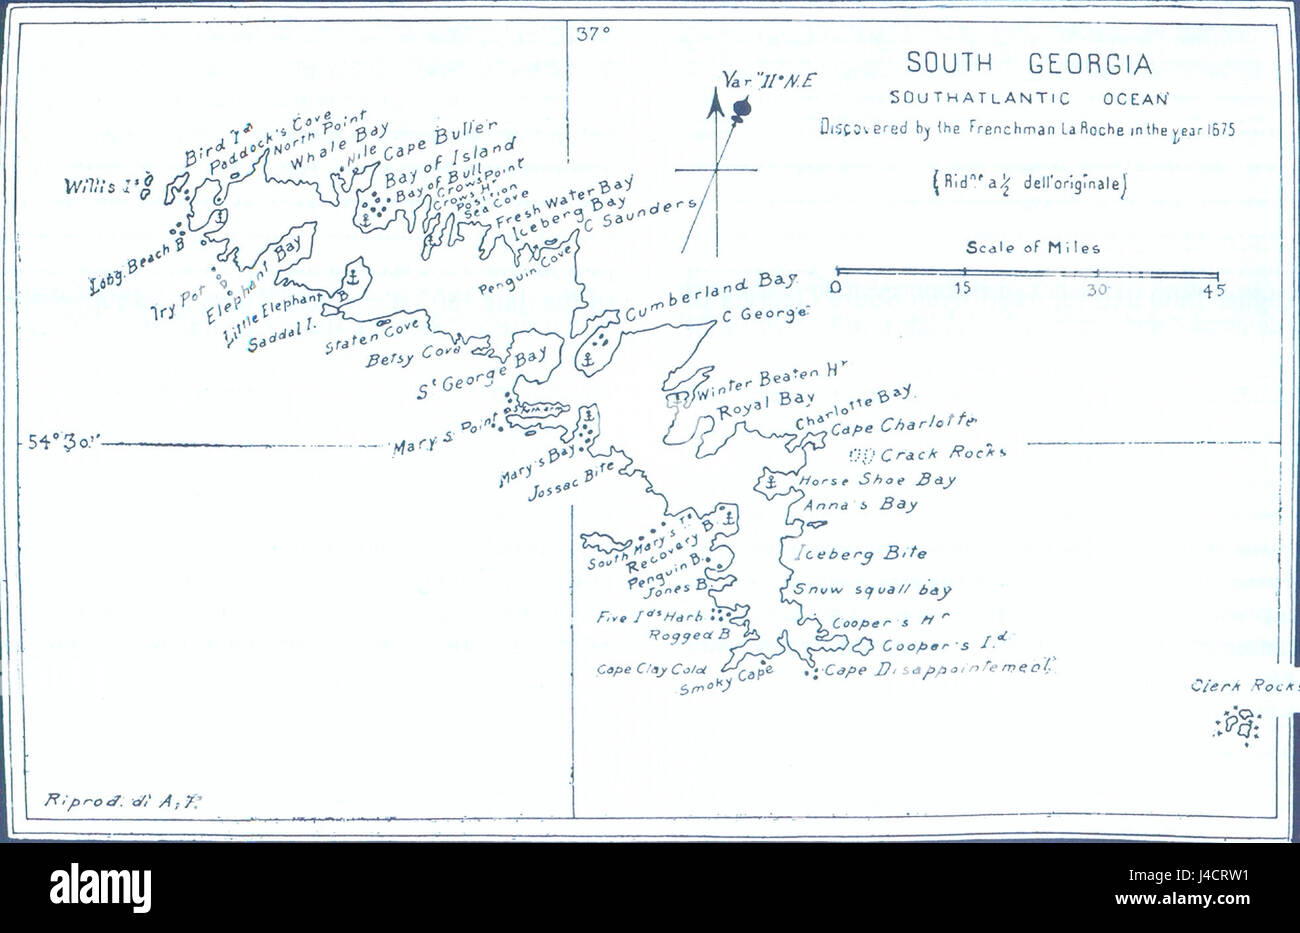 37°
SOUTH GEORGIA
SOUTHATLANTIC OCEAN
Discovered by the Frenchman La Roche in the year 1675
(Rid.ne a ½ dell'originale)
Var n 11° N.E
Scale of Miles
0 15 30 45
Willis Is
Bird Id
Paddock's Cove
North Point
Whale Bay
Nile
Cape Buller
Bay of Island
Bay of Bull
Crows Point
Crows Hr
Position
Sea Cove
Fresh Water Bay
Iceberg Bay
C Saunders
Penguin Cove
Long Beach B
Try Pot
Elephant Bay
Little Elephant B
Saddal I.
Staten Cove
Betsy Cove
St George Bay
Cumberland Bay
C George
Winter Beaten Hr
Royal Bay
Charlotte Bay
Cape Charlotte
Crack Rocks
Horse Shoe Bay
Anna's Bay
Iceberg Bite
Snuw squall bay
Cooper's Hr
Cooper's I.d
Cape Disappointement
54° 30'
Mary's Point
Mary's Bay
Jossac Bite
South Mary's
Recovery B.
Penguin B.
Jones B.
Five Ids Harb
Rogged B
Cape Clay Cold
Smoky Cape
Clerk Rocks
Riprod. di A. F.
alamy
a
alamy
Image ID: J4CRW1
www.alamy.com